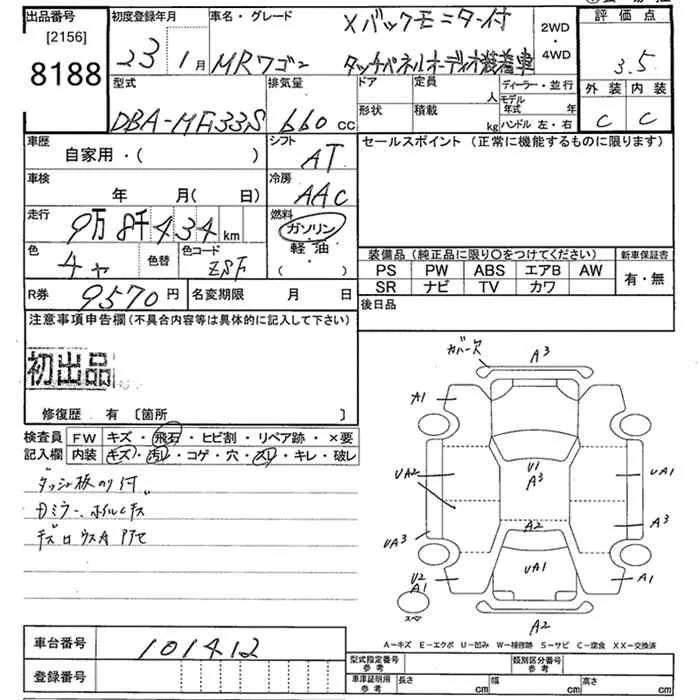 出品番号 初度登録年月 車名・グレード Xバックモニター付 2WD ・ 4WD 評価点
[2156] 23 1月 MRワゴン タッチパネルオーディオ装着車 3.5
8188
型式 排気量 ドア 定員 人 ディーラー・並行 外装 内装
DBA-MF33S 660cc 形状 積載 kg モデル年式 年 C C
ハンドル 左・右
車歴 シフト セールスポイント (正常に機能するものに限ります)
自家用・( ) AT
車検 冷房
年 月(日) AAC
走行 燃料
9万8千434km ガソリン
軽油・
( )
色 色替 色コード
チャ ZSF
装備品(純正品に限り〇をつけてください) 新車保証書
PS PW ABS エアB AW 有・無
SR ナビ TV カワ
R券 9570円 名変期限 月 日 後日品
注意事項申告欄(不具合内容等は具体的に記入して下さい)
初出品
修復歴 有 〔箇所 〕
検査員 FW キズ・飛石・ヒビ割・リペア跡・×要
記入欄 内装 キズ・汚レ・コゲ・穴・スレ・キレ・破レ
ダッシュ板のり付
Dミラー、ホイルキズ
カバー欠 A3
A1
UA2 U1 A3 UA1
UA3 A2 A3
U2 A1 UA1 A1
スペア A2
A−キズ E−エクボ U−凹み W−補修跡 S−サビ C−腐食 XX−交換済
車台番号 101412
登録番号
型式指定番号 参考 類別区分番号 参考
車庫証明用 参考 長さ cm 幅 cm 高さ cm